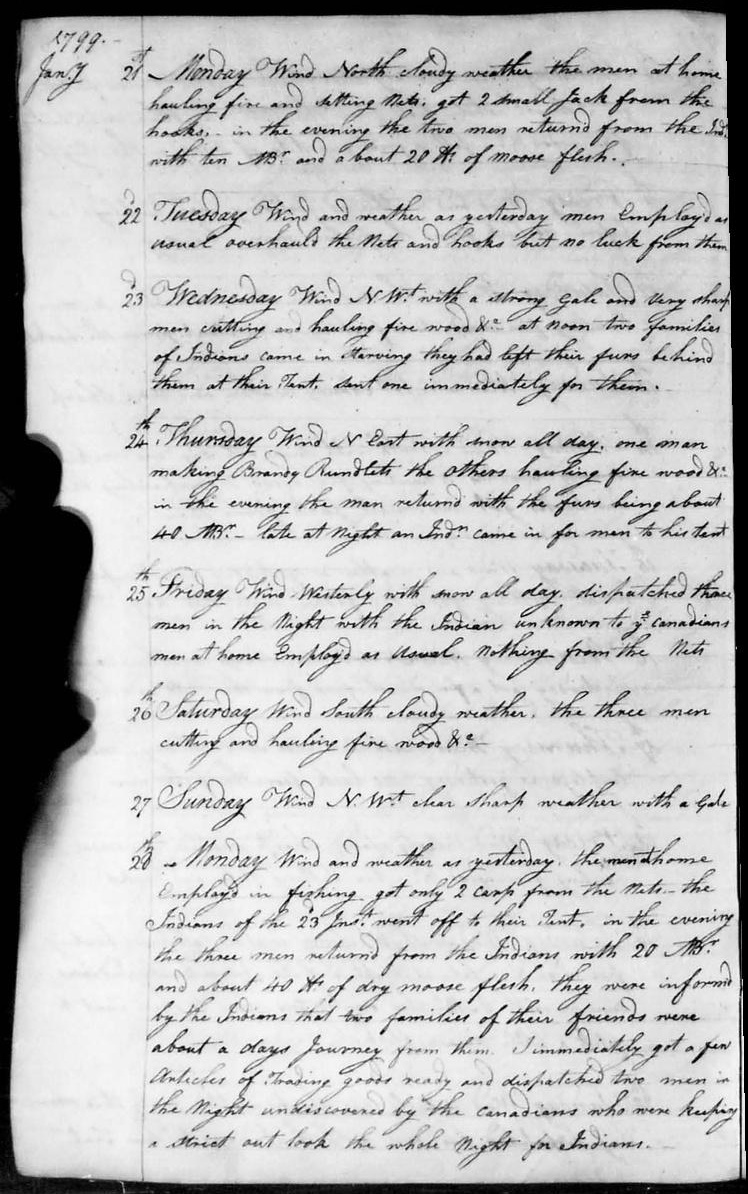 1799.-
Jany 21st Monday Wind North cloudy weather the men at home
hauling fire and setting Nets. got 2 small Jack from the
hooks. - in the evening the two men returnd from the Inds
with ten MBr and about 20 lbs of moose flesh.
22d Tuesday Wind and weather as yesterday men Employ'd as
usual overhauld the Nets and hooks but no luck from them
23d Wednesday Wind N.Wt with a strong Gale and very sharp
men cutting and hauling fire wood &c at noon two families
of Indians came in starving they had left their furs behind
them at their Tent. sent one immediately for them.
24th Thursday Wind N East with snow all day. one man
making Brandy Rundlets the others hauling fire wood &c
in the evening the man returnd with the furs being about
40 MBr - late at Night an Indn came in for men to his tent
25th Friday Wind Westerly with snow all day. dispatched three
men in the Night with the Indian unknown to ye Canadians
men at home Employ'd as usual. Nothing from the Nets
26th Saturday Wind South cloudy weather. the three men
cutting and hauling fire wood &c -
27 Sunday Wind N.Wt clear sharp weather with a Gale
28th - Monday Wind and weather as yesterday. the men at home
Employ'd in fishing got only 2 Carp from the Nets - the
Indians of the 23d Inst went off to their Tent. in the evening
the three men returnd from the Indians with 20 MBr
and about 40 lbs of dry moose flesh. they were informd
by the Indians that two families of their friends were
about a days Journey from them. I immediately got a few
Articles of Trading goods ready and dispatched two men in
the Night undiscovered by the Canadians who were keeping
a strict out look the whole Night for Indians.